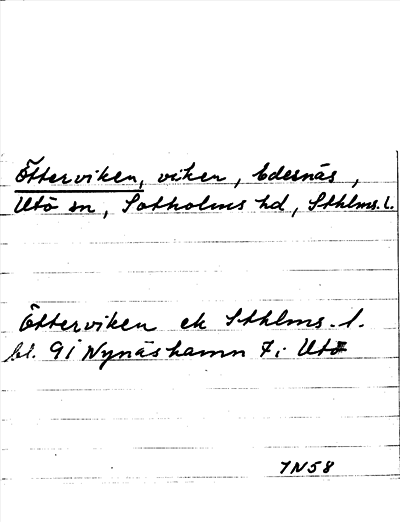 Ötterviken, viken, Edesnäs,
Utö sn, Sotholms hd, Sthlms. l.
Ötterviken ek Sthlms. l.
bl. 9 i Nynäshamn 7 i Utö
IN58